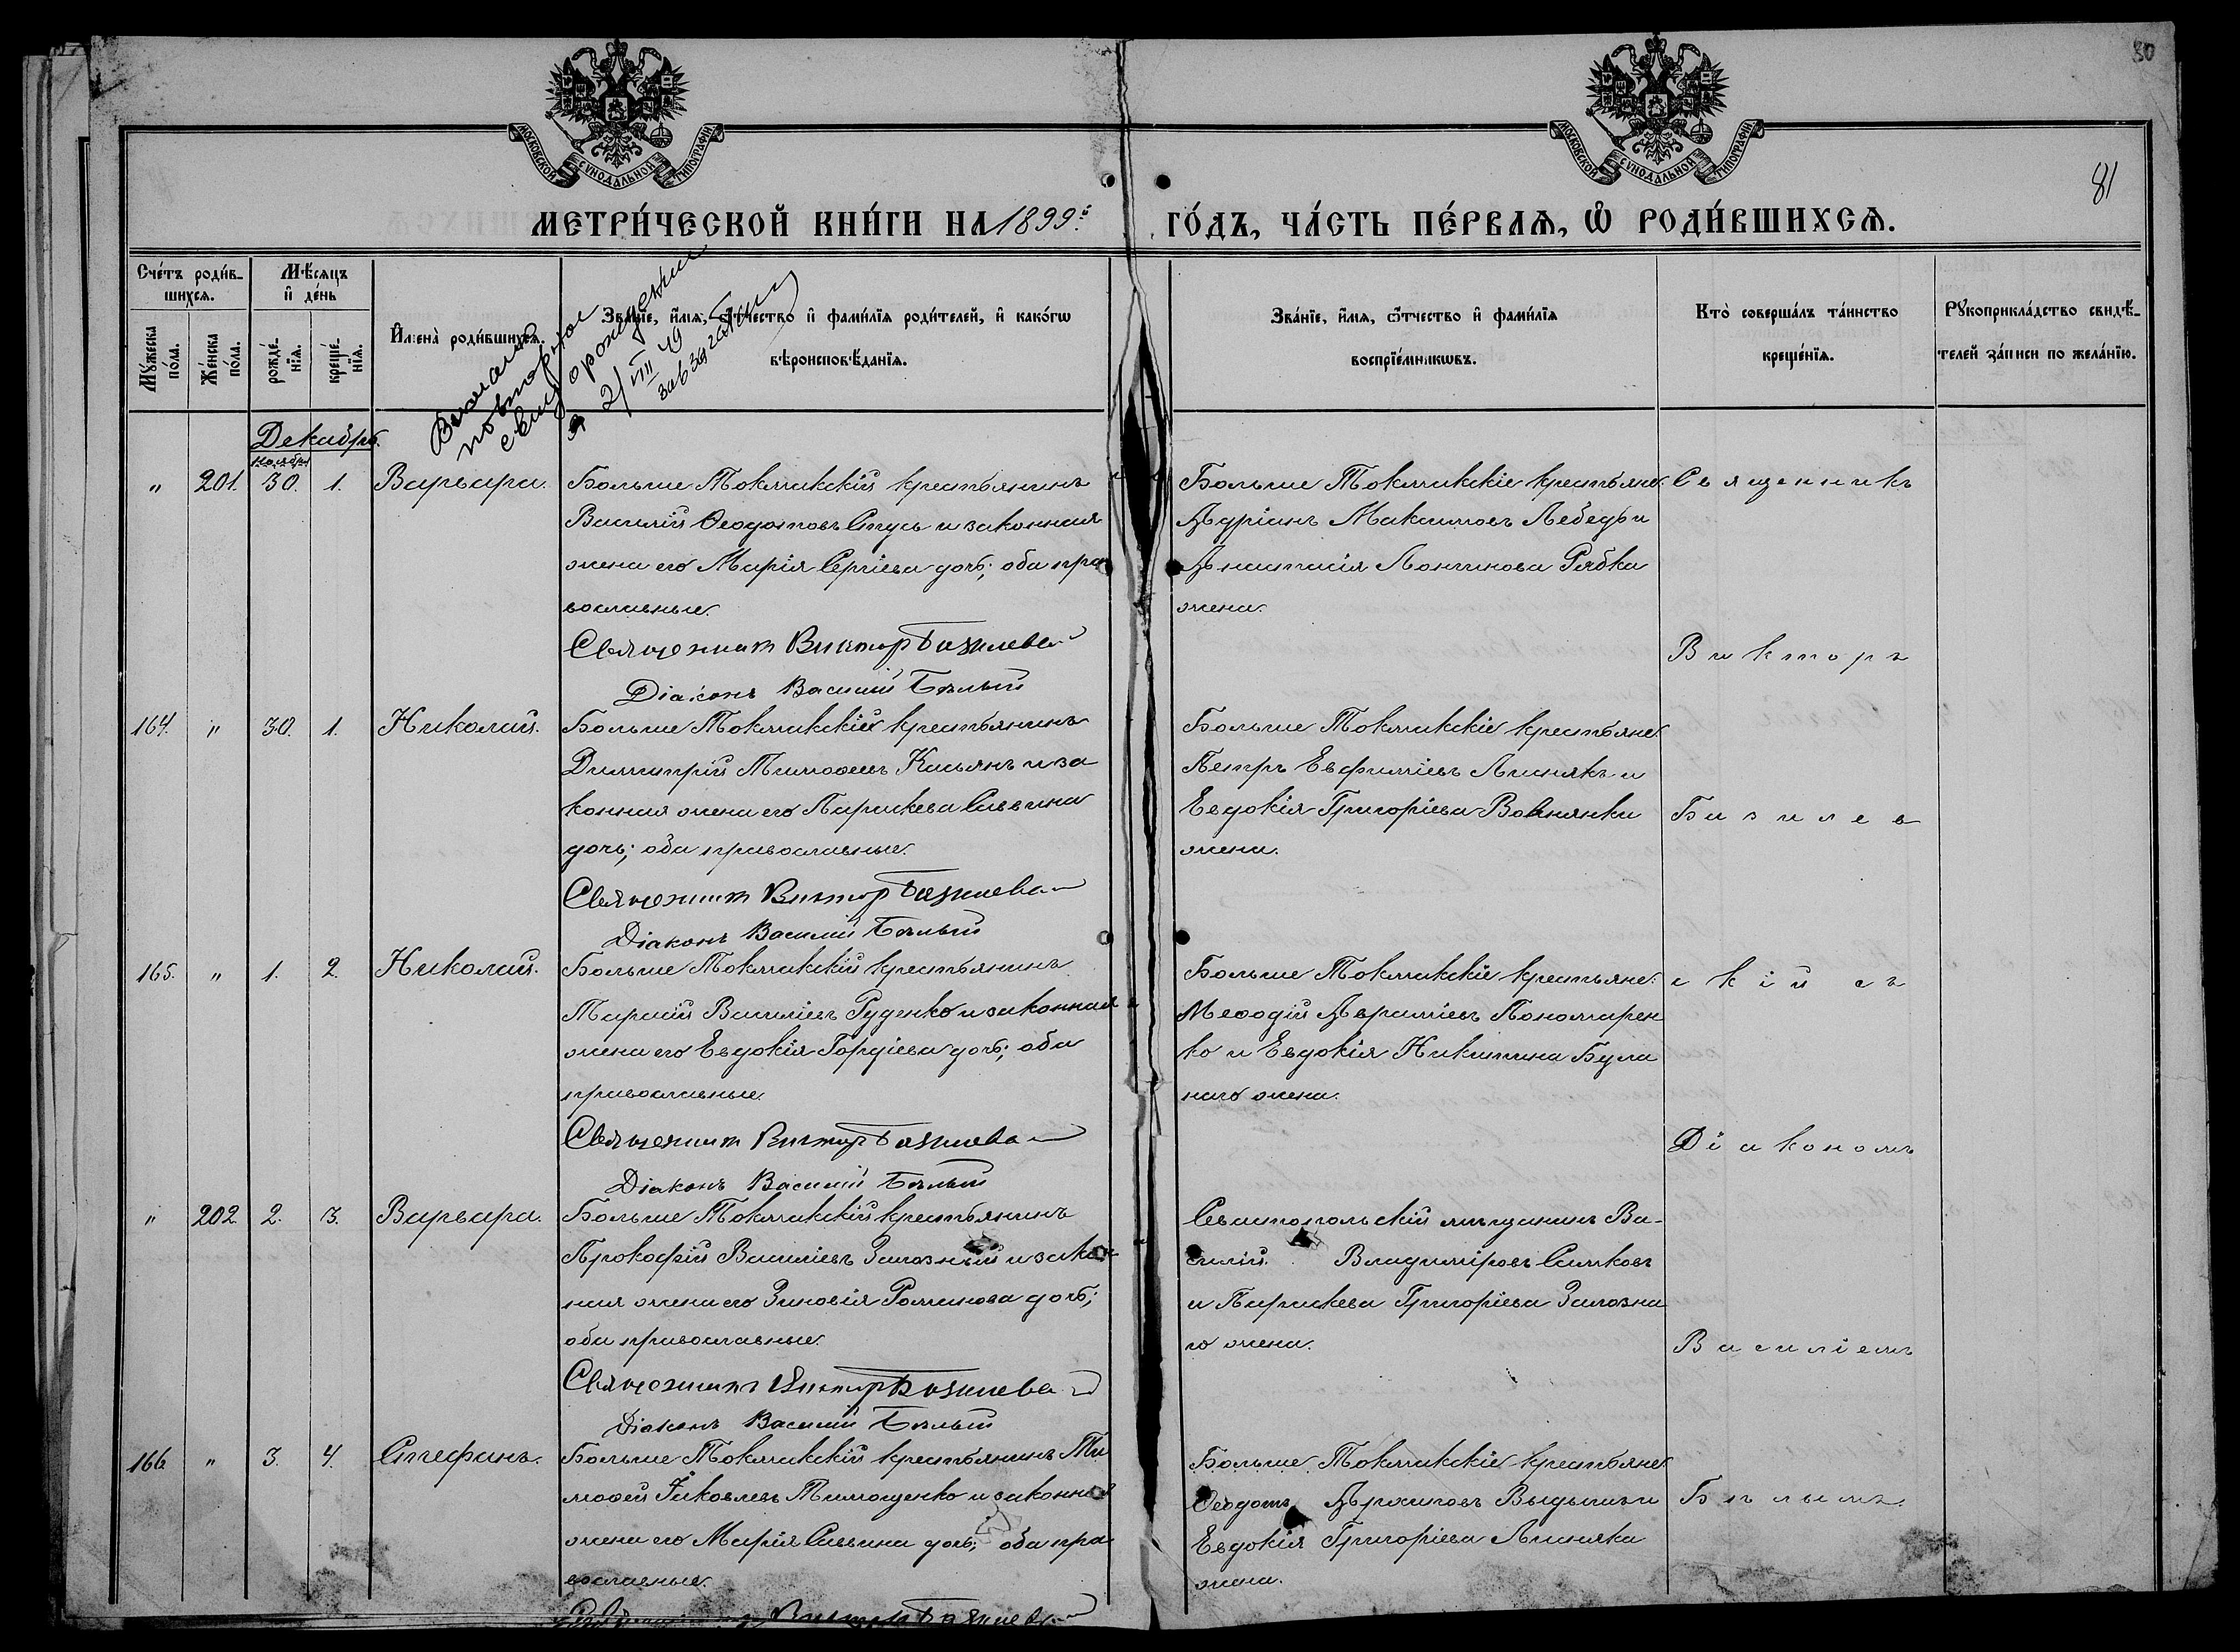 80
81
МОСКОВСКОЙ СѴНОДАЛЬНОЙ ТИПОГРАФІИ
МОСКОВСКОЙ СѴНОДАЛЬНОЙ ТИПОГРАФІИ
МЕТРИ́ЧЕСКОЙ КНИ́ГИ НА 1899й ГО́ДЪ, ЧА́СТЬ ПЕ́РВАѦ, Ѽ РОДИ́ВШИХСѦ.
Сче́тъ роди́в-
шихсѧ.
Мꙋ́жеска по́ла.
Же́нска по́ла.
Мѣ́сѧцъ
и҆ де́нь
рожде́-
нїѧ.
креще́-
нїѧ.
И҆мена̀ роди́вшихсѧ.
Зва́нїе, и҆́мѧ, ѻ҆́тчество и҆ фами́лїѧ роди́телей, и҆ како́гѡ
вѣроисповѣ́данїѧ.
Зва́нїе, и҆́мѧ, ѻ҆́тчество и҆ фами́лїѧ
воспрїе́мниковъ.
Кто̀ соверша́лъ та́инство
креще́нїѧ.
Рꙋкоприкла́дство свидѣ́-
телей за́писи по жела́нїю.
повторное
свид о рождении
21/VIII 49
Декабрь.
ноября
" 201. 30. 1. Варвара.
Больше Токмакскій крестьянинъ
Василій Ѳеодотовъ Стусь и законная
жена его Марія Сергіева дочь; оба пра
вославные.
Священникъ Виктор Базилева
Діаконъ Василій Бѣлый
Больше Токмакскіе крестьяне
Адріанъ Максимовъ Лебедь и
Анастасія Логгинова Рябка
жена.
164. " 30. 1. Николай.
Больше Токмакскій крестьянинъ
Димитрій Тимоѳеевъ Касьянъ и за
конная жена его Параскева Саввина
дочь; оба православные.
Священникъ Виктор Базилева
Діаконъ Василій Бѣлый
Больше Токмакскіе крестьяне
Петръ Евфиміевъ Лиснякъ и
Евдокія Григоріева
жена.
165. " 1. 2. Николай.
Больше Токмакскій крестьянинъ
Тарасій Василіевъ Руденко и законная
жена его Евдокія Гордіева дочь; оба
православные.
Священникъ Виктор Базилева
Діаконъ Василій Бѣлый
Больше Токмакскіе крестьяне:
Меѳодій Авраміевъ Пономарен
ко и Евдокія Никитина Була
наго жена.
" 202. 2. 3. Варвара.
Больше Токмакскій крестьянинъ
Прокофій Василіевъ Залозный и закон
ная жена его Зиновія Романова дочь;
оба православные.
Священникъ Виктор Базилева
Діаконъ Василій Бѣлый
Севастопольскій мѣщанинъ Ва-
силій Владиміровъ Самковъ
и Параскева Григоріева Залозна
го жена.
166 " 3. 4. Стефанъ.
Больше Токмакскій крестьянинъ Ти
моѳей Іаковлевъ Тимощенко и законная
жена его Марія Саввина дочь; оба пра
вославные.
Священникъ Виктор Базилева
Больше Токмакскіе крестьяне
Ѳеодотъ Архиповъ и
Евдокія Григоріева Лисняка
жена.
Священникъ
Викторъ
Базилев
скій съ
Діакономъ
Василіемъ
Бѣлымъ.